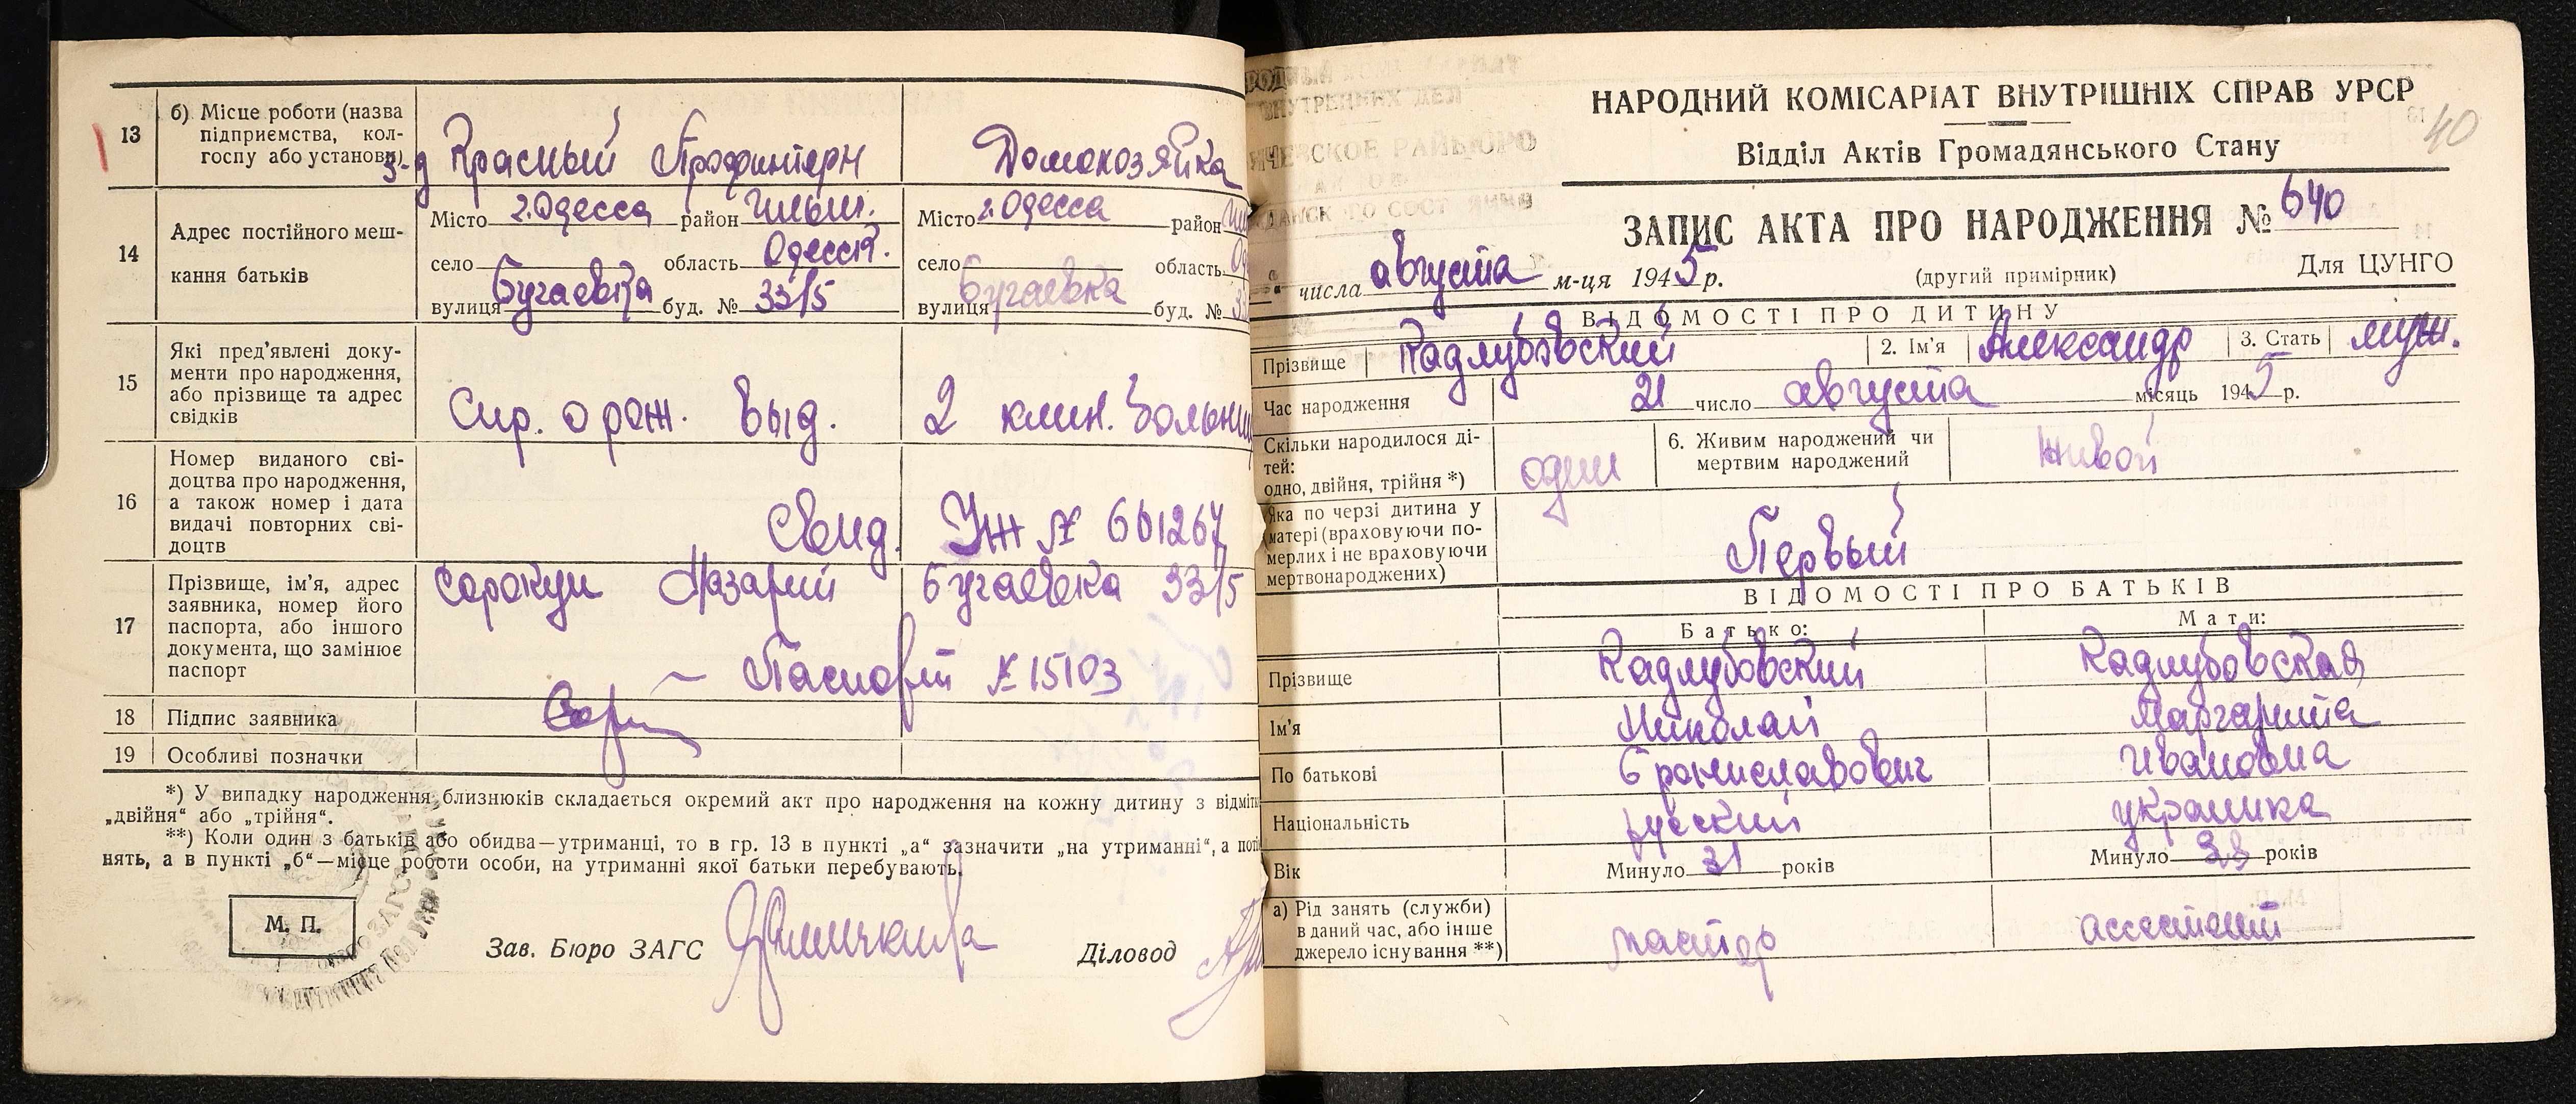 13
б) Місце роботи (назва
підприємства, кол-
госпу або установи)
з-д Красный Профинтерн
Домохозяйка
14
Адрес постійного меш-
кання батьків
Місто г. Одесса район Ильич.
село область Одесск.
вулиця Бугаевка буд. № 33/5
Місто г. Одесса район
село область
вулиця Бугаевка буд. №
15
Які пред'явлені доку-
менти про народження,
або прізвище та адрес
свідків
Спр. о рож. выд. 2 клин.
16
Номер виданого сві-
доцтва про народження,
а також номер і дата
видачі повторних сві-
доцтв
Свид. УЖ № 661267
17
Прізвище, ім'я, адрес
заявника, номер його
паспорта, або іншого
документа, що замінює
паспорт
Сорокун Назарий Бугаевка 33/5
Паспорт № 15103
18 Підпис заявника
19 Особливі позначки
*) У випадку народження близнюків складається окремий акт про народження на кожну дитину з
„двійня“ або „трійня“.
**) Коли один з батьків або обидва—утриманці, то в гр. 13 в пункті „а“ зазначити „на утриманні“, а
нять, а в пункті „б“—місце роботи особи, на утриманні якої батьки перебувають.
М. П.
Зав. Бюро ЗАГС
Діловод
НАРОДНИЙ КОМІСАРІАТ ВНУТРІШНІХ СПРАВ УРСР
40
Відділ Актів Громадянського Стану
ЗАПИС АКТА ПРО НАРОДЖЕННЯ № 640
числа августа м-ця 1945 р.
(другий примірник)
Для ЦУНГО
ВІДОМОСТІ ПРО ДИТИНУ
Прізвище Кадлубовский 2. Ім'я Александр 3. Стать муж.
Час народження 21 число августа місяць 1945 р.
Скільки народилося ді-
тей:
одно, двійня, трійня *)
один
6. Живим народжений чи
мертвим народжений
Живой
Яка по черзі дитина у
матері (враховуючи по-
мерлих і не враховуючи
мертвонароджених)
Первый
ВІДОМОСТІ ПРО БАТЬКІВ
Батько: Мати:
Прізвище Кадлубовский Кадлубовская
Ім'я Николай Маргарита
По батькові Брониславович Ивановна
Національність русский украинка
Вік Минуло 31 років Минуло років
а) Рід занять (служби)
в даний час, або інше
джерело існування **)
мастер